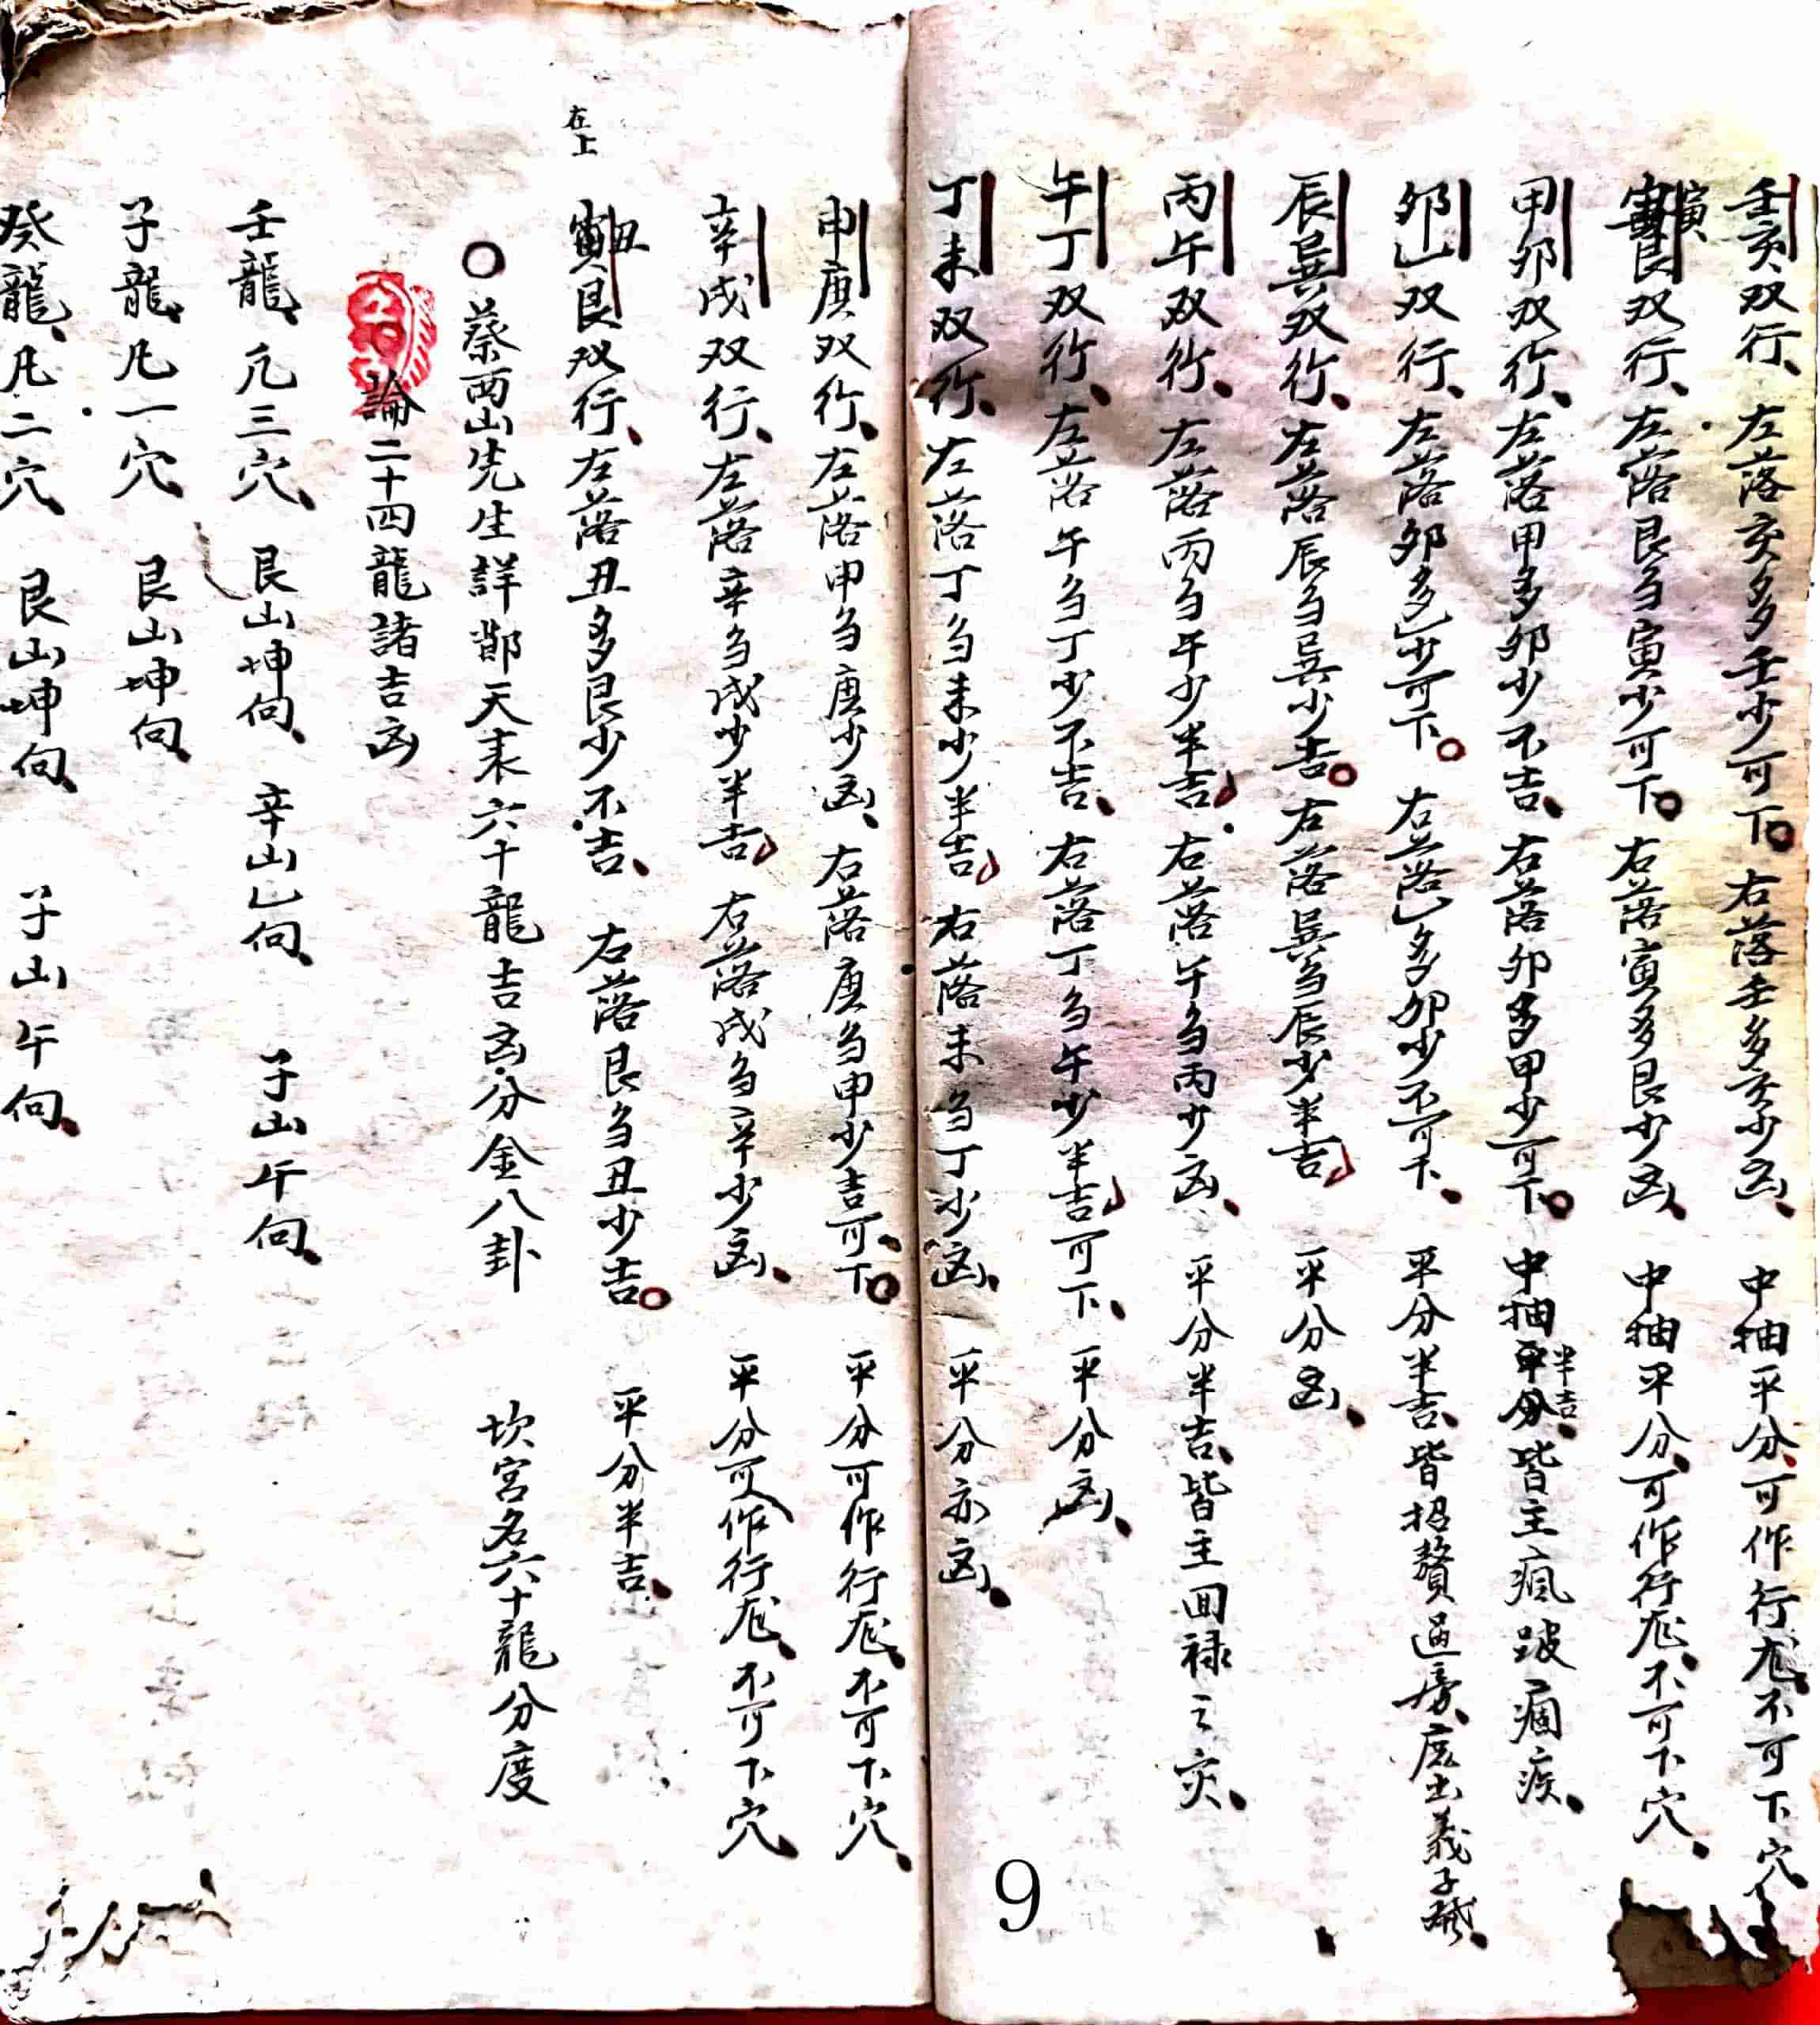 壬亥双行、左落亥多壬少可下。右落壬多亥少凶、中抽平分、可作行尨、不可下穴、
寅艮双行、左落艮多寅少可下。右落寅多艮少凶、中抽平分、可作行尨、不可下穴、
甲卯双行、左落甲多卯少不吉、右落卯多甲少可下。中抽半吉、皆主瘋跛痼疾、
卯乙双行、左落卯多乙少可下。右落乙多卯少不可下、平分半吉、皆招贅過房、庶出義子
辰巽双行、左落辰多巽少吉。右落巽多辰少半吉、平分凶、
丙午双行、左落丙多午少半吉、右落午多丙少凶、平分半吉、皆主回禄之灾、
午丁双行、左落午多丁少不吉、右落丁多午少半吉可下、平分凶、
丁未双行、左落丁多未少半吉、右落未多丁少凶、平分亦凶、
9
申庚双行、左落申多庚少凶、右落庚多申少吉可下。平分可作行尨、不可下穴、
辛戌双行、左落辛多戌少半吉、右落戌多辛少凶、平分可作行尨、不可下穴、
在上
丑艮双行、左落丑多艮少不吉、右落艮多丑少吉。平分半吉、
○蔡西山先生詳鄒天表六十龍吉凶分金八卦 坎宮名六十龍分度
論二十四龍諸吉凶
壬龍、凡三穴、艮山坤向、辛山乙向、子山午向、
子龍、凡一穴、艮山坤向、
癸龍、凡二穴、艮山坤向、子山午向、